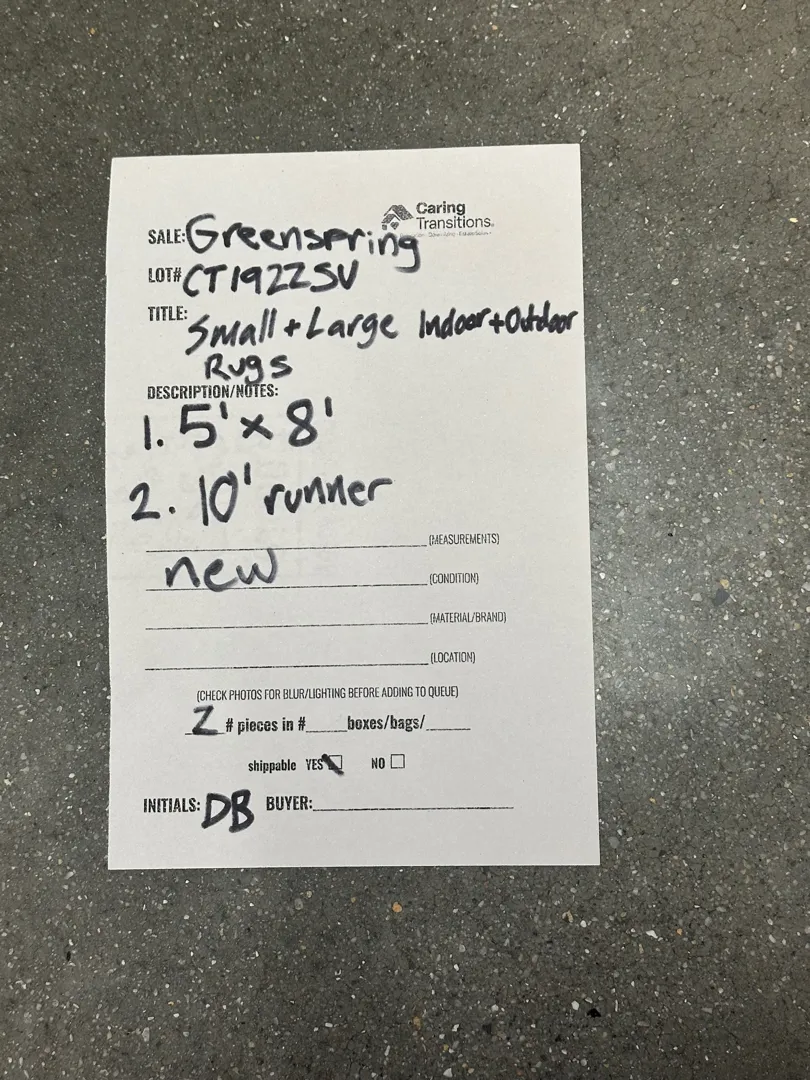 Caring
Transitions.
SALE: Greenspring
LOT# CT1922SV
TITLE: Small + Large Indoor + Outdoor
Rugs
DESCRIPTION/NOTES:
1. 5' x 8'
2. 10' runner
(MEASUREMENTS)
new (CONDITION)
(MATERIAL/BRAND)
(LOCATION)
(CHECK PHOTOS FOR BLUR/LIGHTING BEFORE ADDING TO QUEUE)
2 # pieces in #____boxes/bags/____
shippable YES NO
INITIALS: DB BUYER: